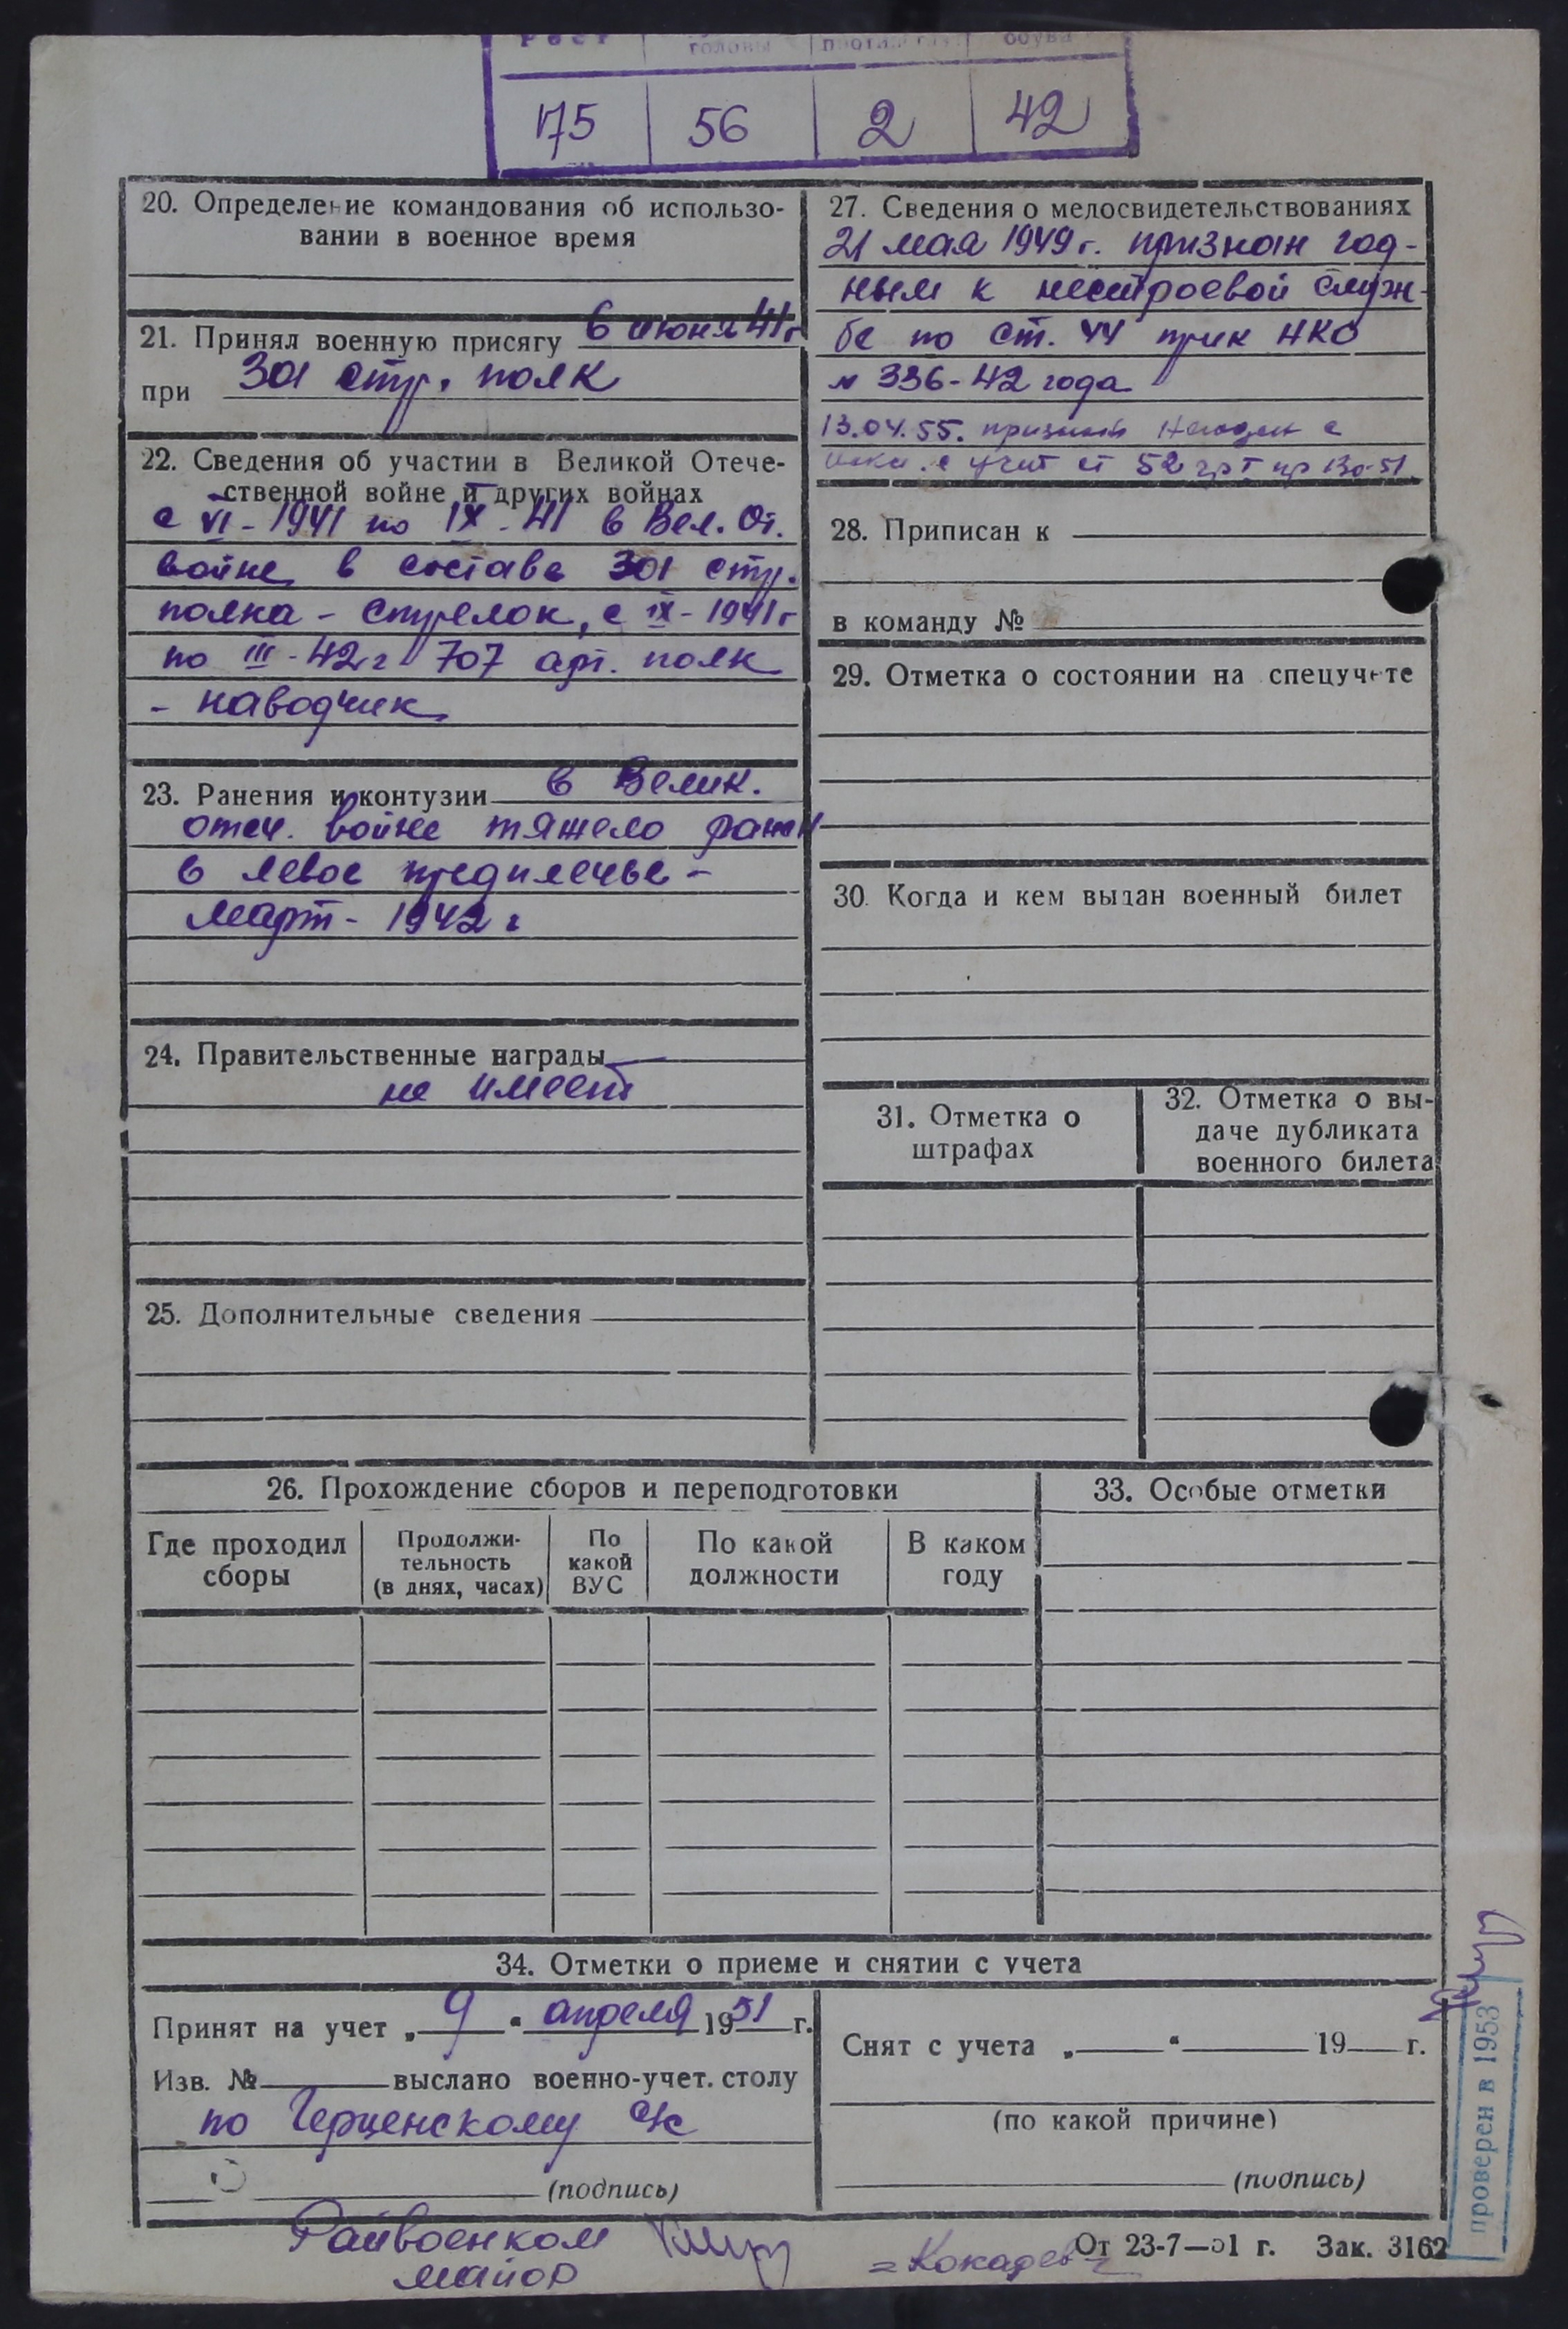 Рост головы обуви
175 56 2 42
20. Определение командования об использо-
вании в военное время
21. Принял военную присягу 6 июня 41г
при 301 стр. полк
22. Сведения об участии в Великой Отече-
ственной войне и других войнах
с VI-1941 по IX-41 в Вел. От.
войне в составе 301 стр.
полка - стрелок, с IX-1941г
по III-42г 707 арт. полк
- наводчик
23. Ранения и контузии в Велик.
отеч. войне тяжело ранен
в левое предплечье -
март - 1942 г
24. Правительственные награды
не имеет
25. Дополнительные сведения
27. Сведения о медосвидетельствованиях
21 мая 1949г. признан год-
ным к нестроевой служ-
бе по ст. 44 прик НКО
№ 336-42 года
13.04.55. признан Негоден с
искл. с учет ст 52 гр I пр 130-51.
28. Приписан к
в команду №
29. Отметка о состоянии на спецучете
30. Когда и кем выдан военный билет
31. Отметка о
штрафах
32. Отметка о вы-
даче дубликата
военного билета
26. Прохождение сборов и переподготовки
Где проходил
сборы
Продолжи-
тельность
(в днях, часах)
По
какой
ВУС
По какой
должности
В каком
году
33. Особые отметки
34. Отметки о приеме и снятии с учета
Принят на учет „ 9 “ апреля 1951 г.
Изв. № выслано военно-учет. столу
по Герценскому с/с
(подпись)
Снят с учета „ “ 19 г.
(по какой причине)
(подпись)
Райвоенком
майор
=Кокадев=
От 23-7—51 г. Зак. 3162
проверен в 1953